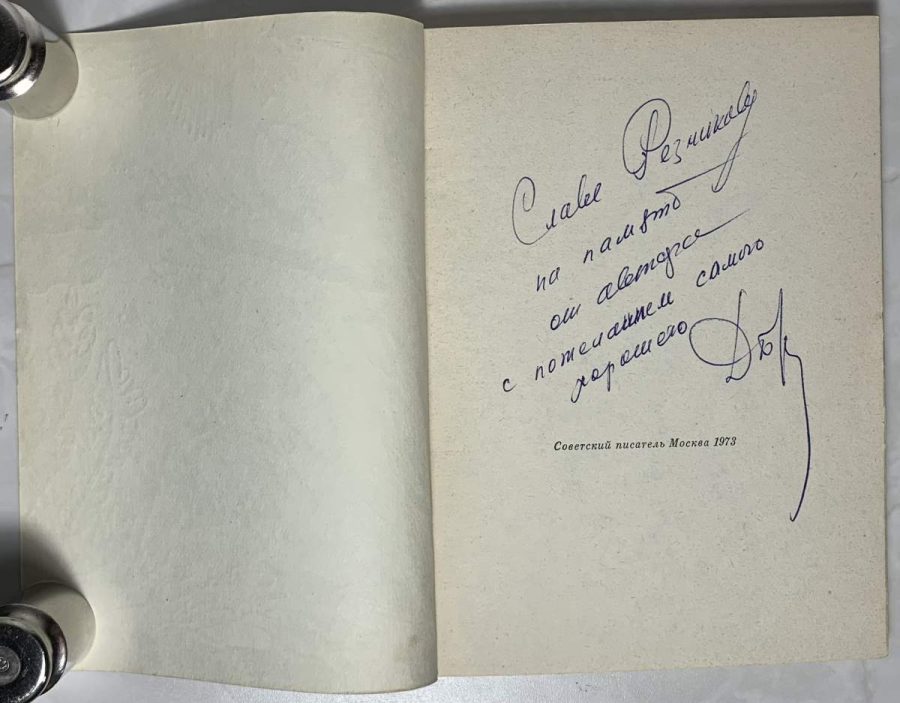 Славе Резникову
на память
от автора
с пожеланием самого
хорошего
Советский писатель Москва 1973